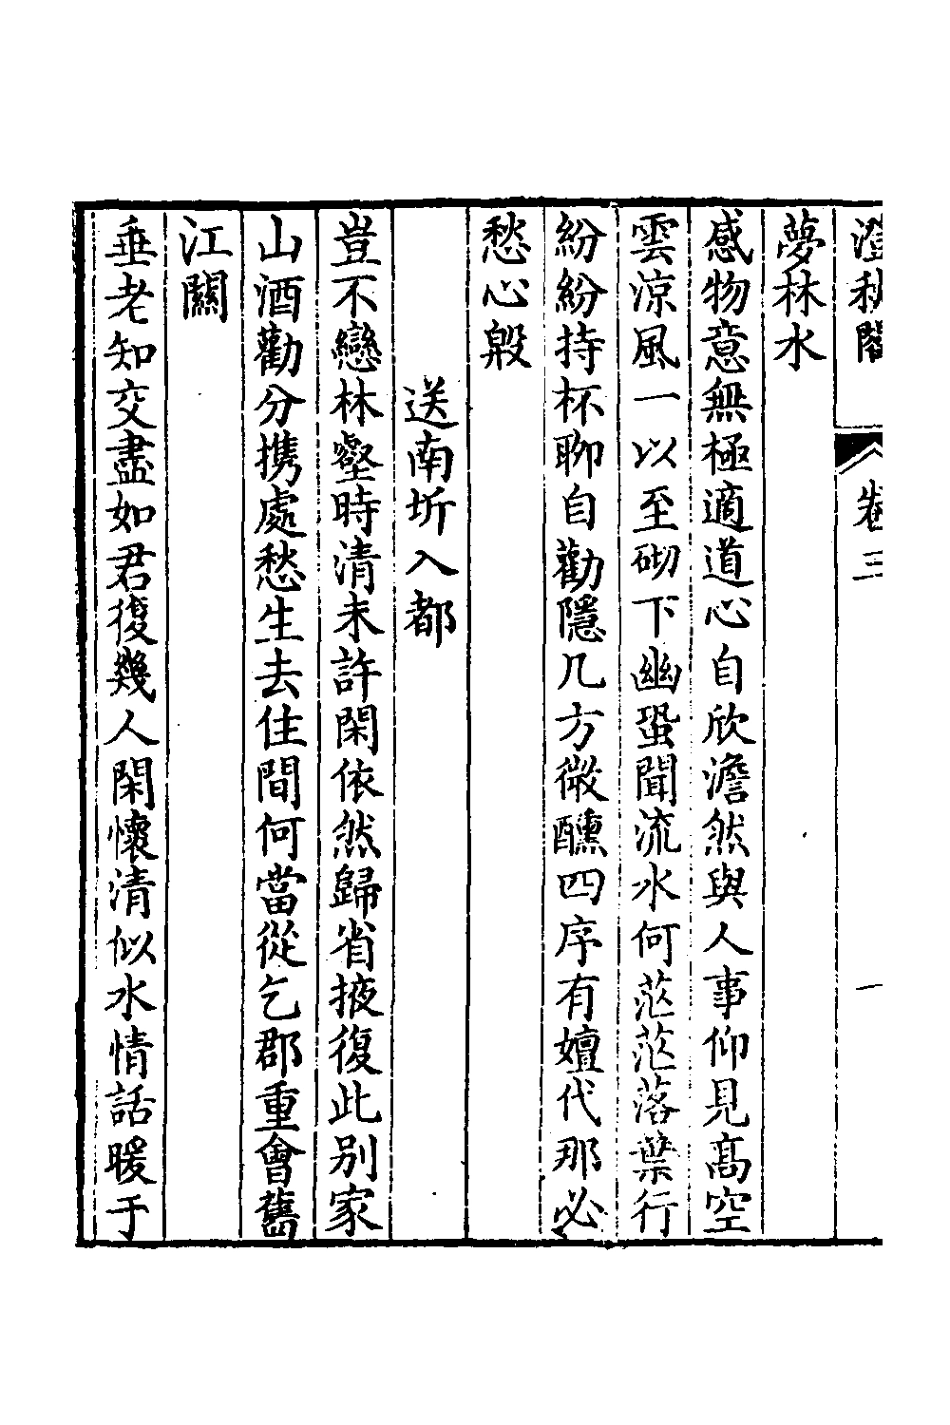 澄秋閣 卷三 一
夢林水
感物意無極適道心自欣澹然與人事仰見高空
雲涼風一以至砌下幽蛩聞流水何茫茫落葉行
紛紛持杯聊自勸隱几方微醺四序有嬗代那必
愁心殽
送南圻入都
豈不戀林壑時清未許閑依然歸省掖復此别家
山酒勸分携處愁生去住間何當從乞郡重會舊
江關
垂老知交盡如君復幾人閑懷清似水情話暖于